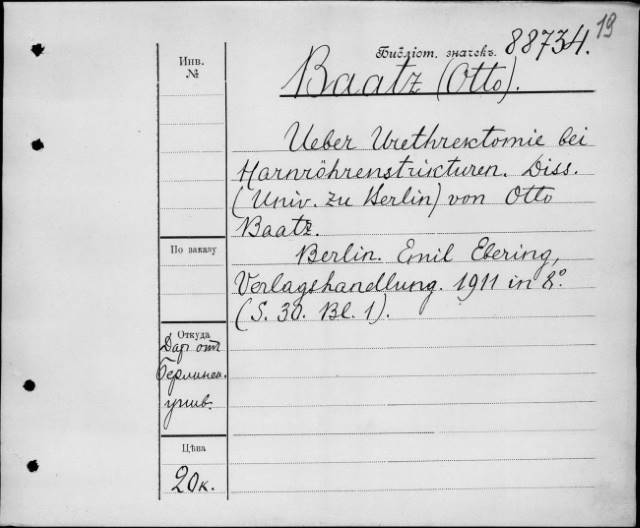 19
Библіот. значекъ. 88734.
Baatz (Otto).
Инв.
№
Ueber Urethrektomie bei
Harnröhrenstrikturen. Diss.
(Univ. zu Berlin) von Otto
Baatz.
По заказу
Berlin. Emil Ebering,
Verlagshandlung. 1911 in 8°.
(S. 30. Bl. 1).
Откуда
Дар отъ
Берлинск.
унив.
Цѣна
20 к.